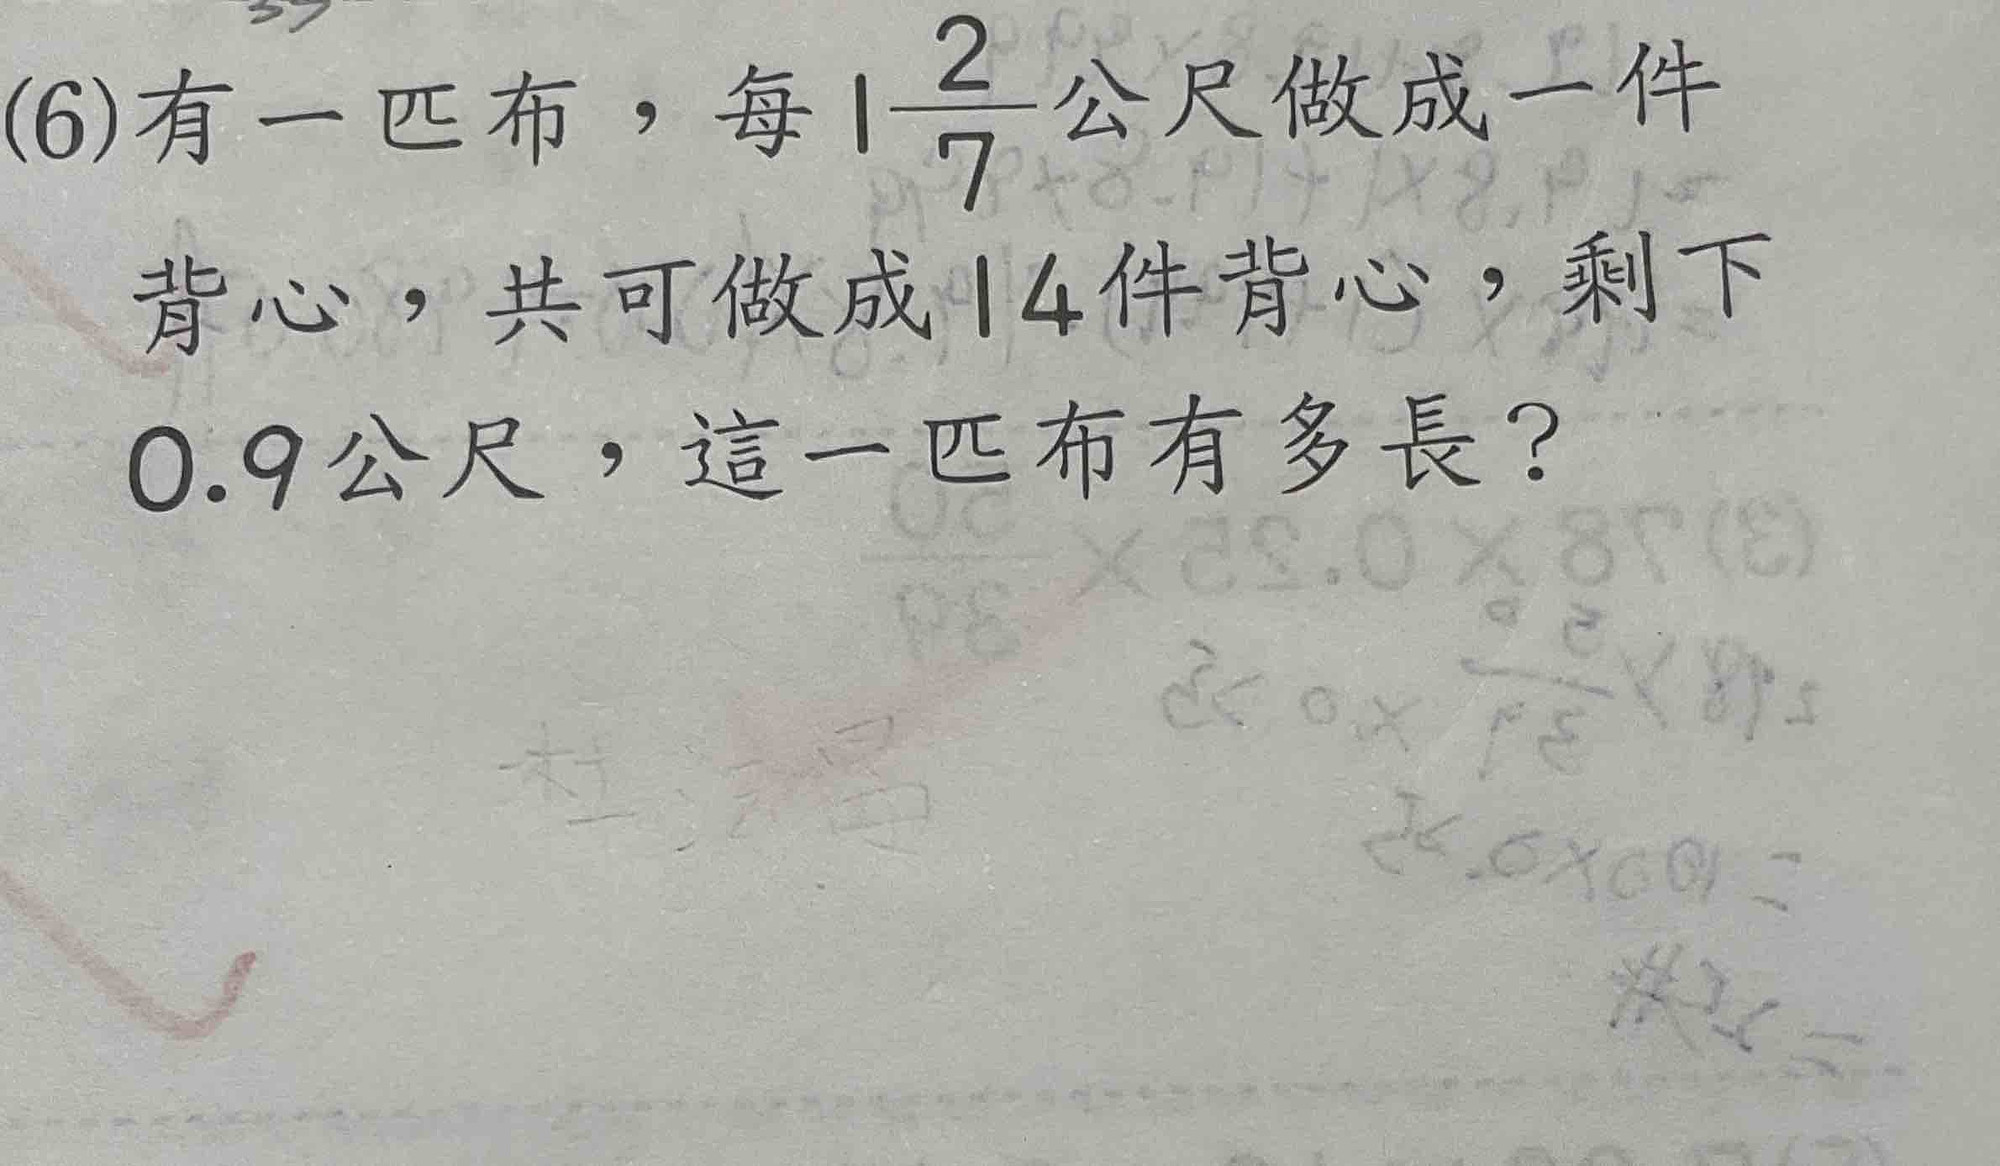 (6)有一匹布，每1 2/7公尺做成一件
背心，共可做成14件背心，剩下
0.9公尺，這一匹布有多長？